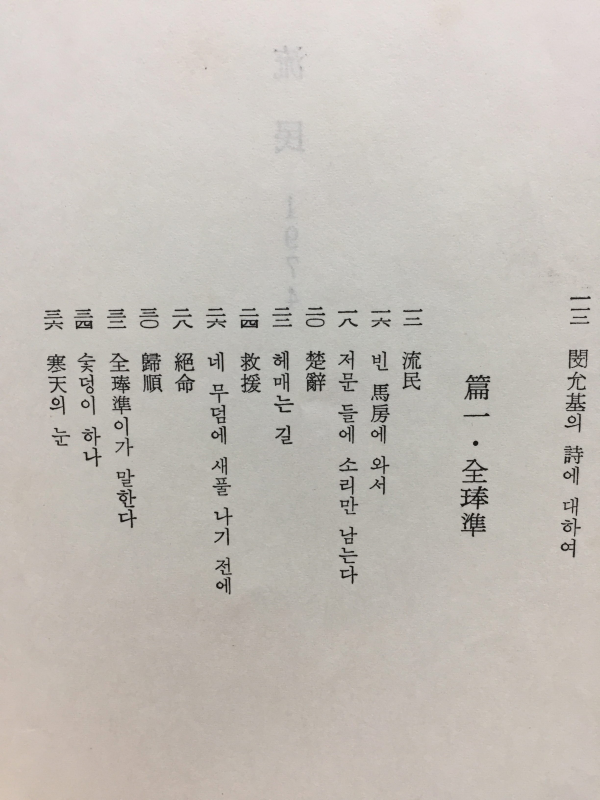 一一二 閔允基의 詩에 대하여
篇一・全琫準
一二 流民
一六 빈 馬房에 와서
一八 저문 들에 소리만 남는다
二〇 楚辭
二二 헤매는 길
二四 救援
二六 네 무덤에 새풀 나기 전에
二八 絕命
三〇 歸順
三二 全琫準이가 말한다
三四 숯덩이 하나
三六 寒天의 눈
流民 1974